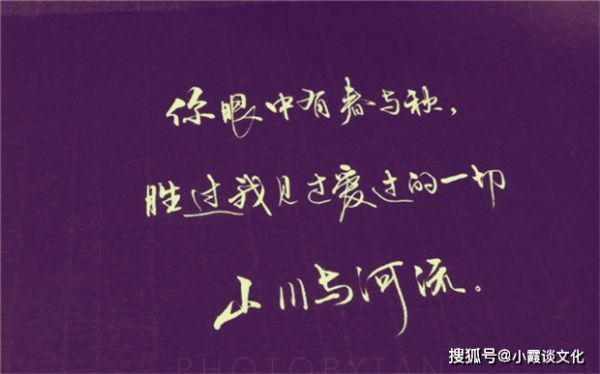 你眼中有春与秋，
胜过我见过爱过的一切
山川与河流。
搜狐号@小霞谈文化